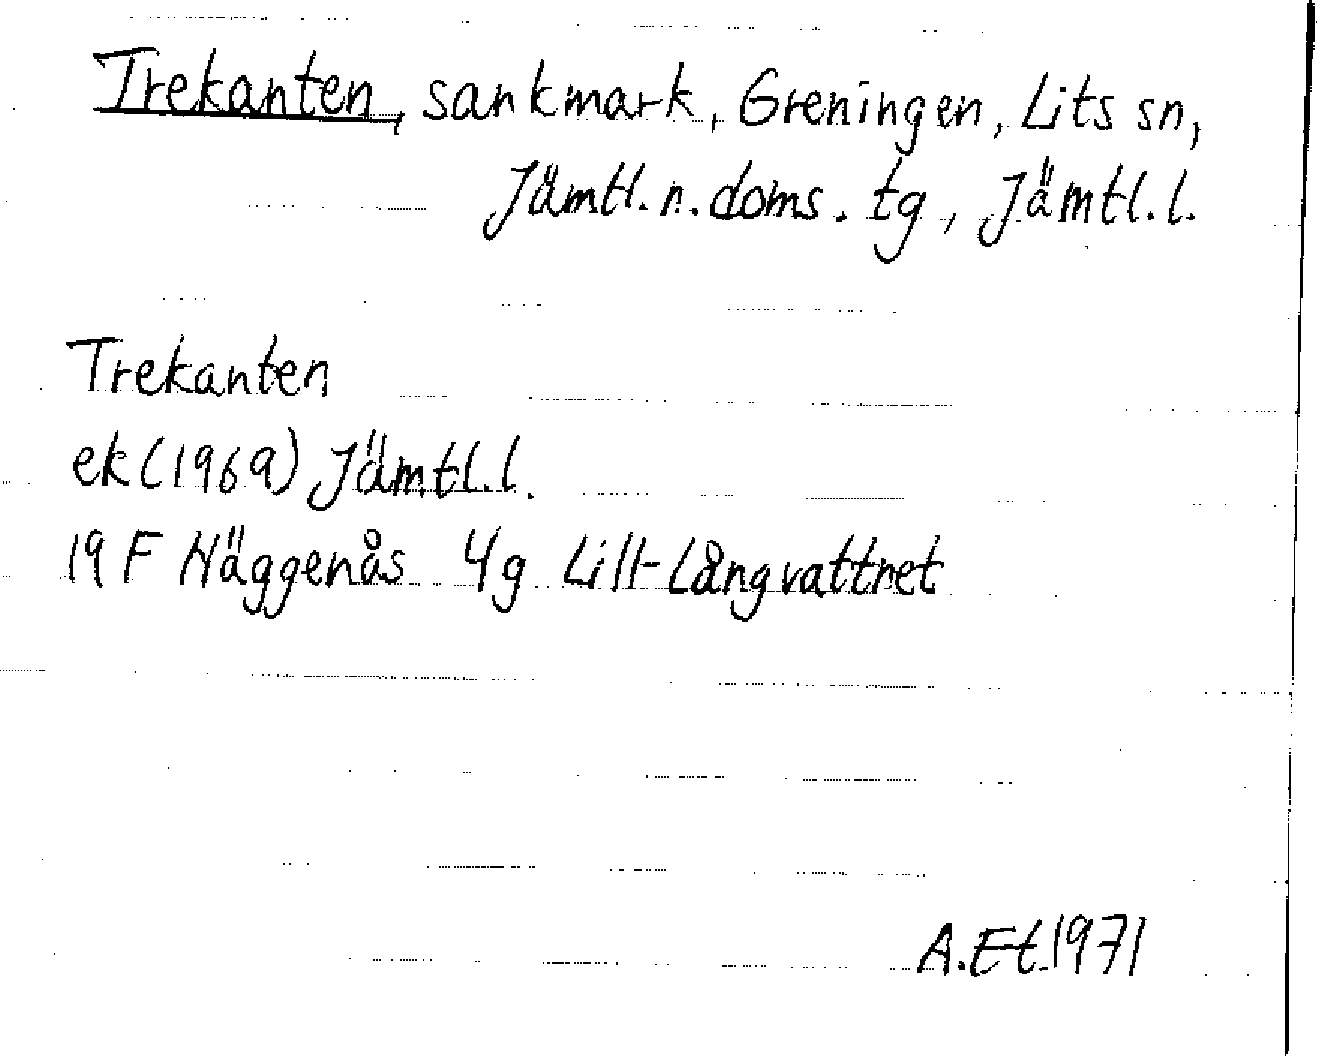 Trekanten, sankmark, Greningen, Lits sn,
Jämtl. n. doms. tg, Jämtl. l.
Trekanten
ek (1969) Jämtl. l.
19 F Häggenås 4g Lill-Långvattnet
A. Et. 1971